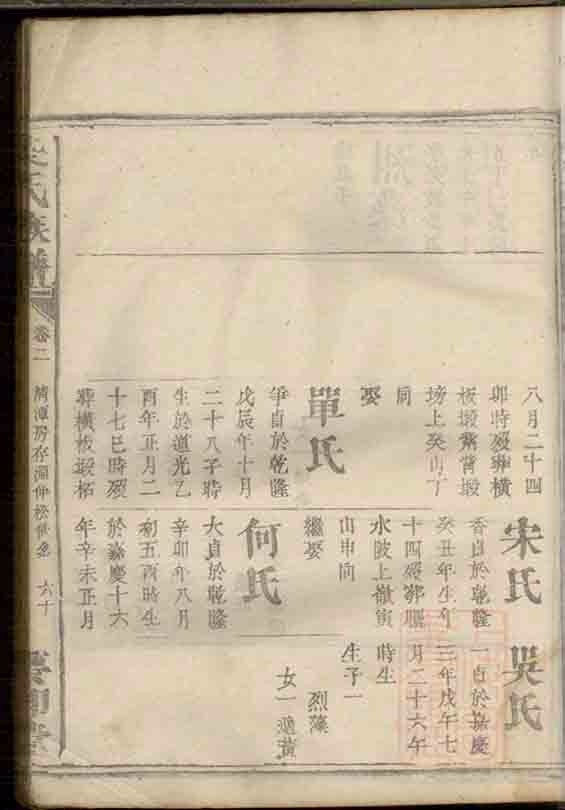 八月二十四
卯時歿葬橫
板塅
塝上癸山丁
向
娶
單氏
爭貞於乾隆
戊辰年十月
二十八子時
生於道光乙
酉年正月二
十七巳時歿
葬橫板塅柘
宋氏
香貞於乾隆
癸丑年生年
十四歿葬
水陂上嶺寅
山申向
繼娶
何氏
大貞於乾隆
辛卯年八月
初五酉時生
於嘉慶十六
年辛未正月
吳氏
一貞於嘉慶
三年戊午七
月二十六午
時生
生子一
烈藻
女一適黃
氏族譜
卷二
六十